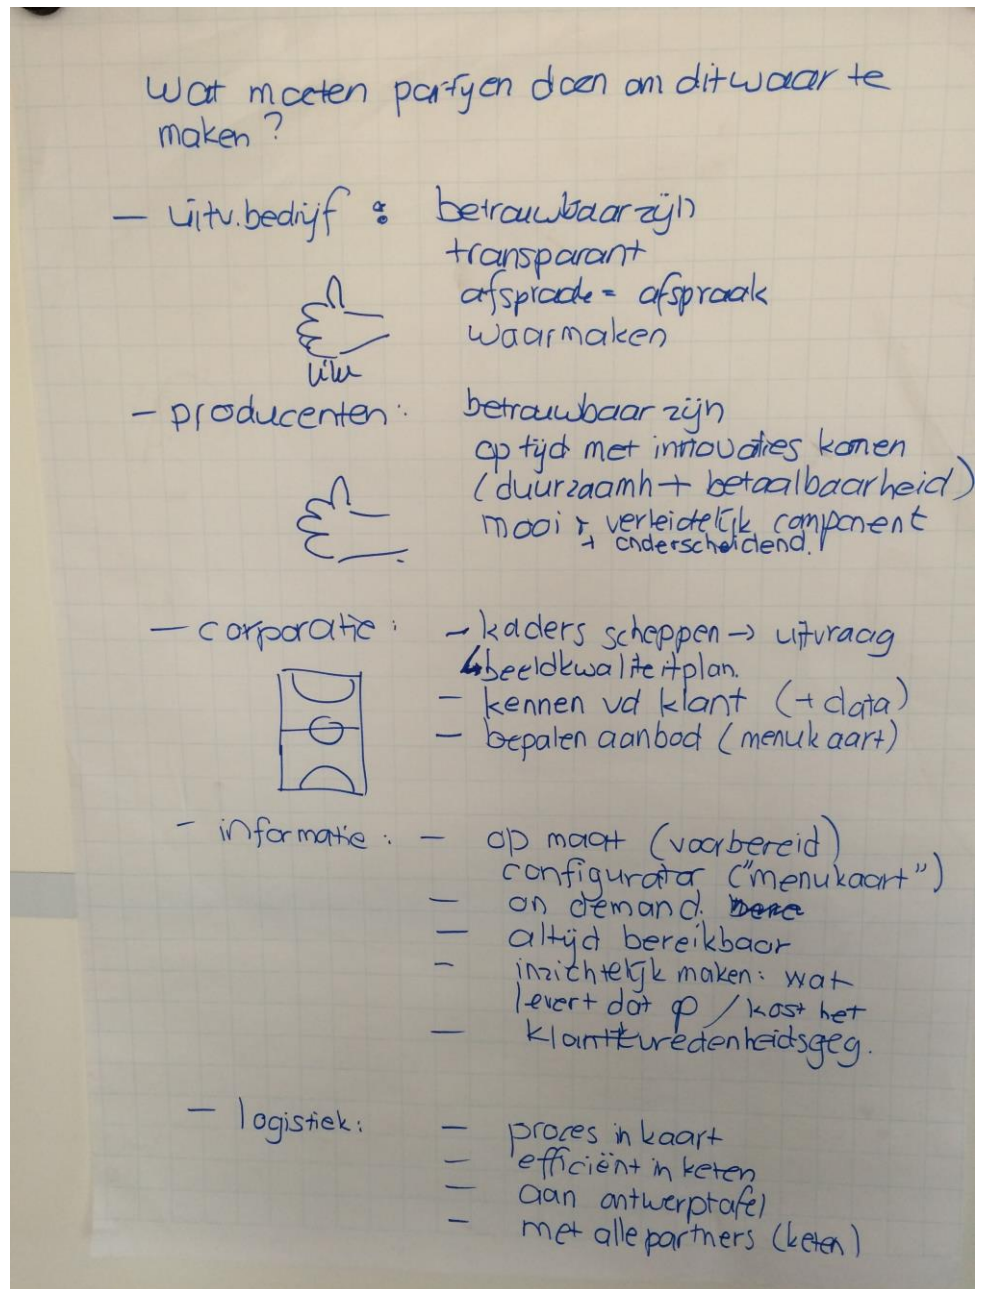 Wat moeten partijen doen om dit waar te
maken?
- uitv. bedrijf : betrouwbaar zijn
transparant
afsprade = afspraak
waarmaken
- producenten: betrouwbaar zijn
op tijd met innovaties komen
(duurzaamh + betaalbaarheid)
mooi + verleidelijk component
+ onderscheidend.
- corporatie: - kaders scheppen → uitvraag
↳ beeldkwaliteitplan.
- kennen vd klant (+ data)
- bepalen aanbod (menukaart)
- informatie: - op maat (voorbereid)
configurator ("menukaart")
- on demand.
- altijd bereikbaar
- inzichtelijk maken: wat
levert dat op / kost het
- klanttevredenheidsgeg.
- logistiek: - proces in kaart
- efficiënt in keten
- aan ontwerptafel
- met alle partners (keten)